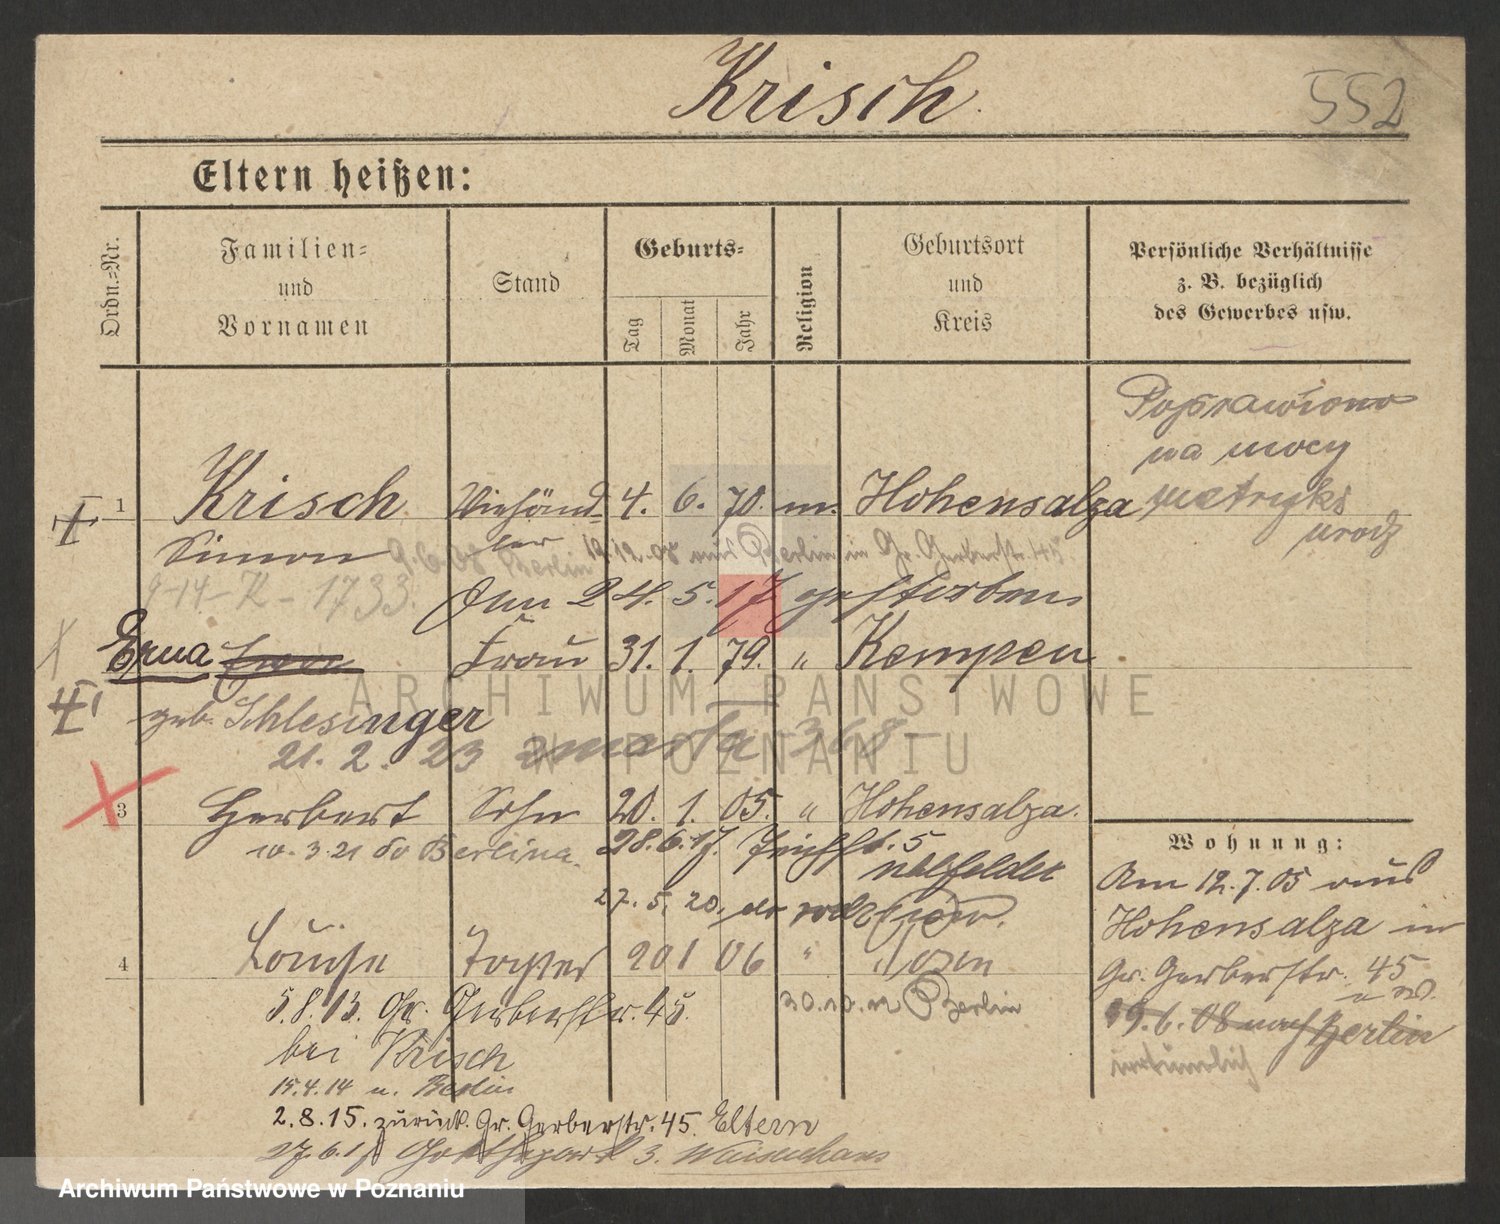 Krisch
552
Eltern heißen:
Ordn.=Nr.
Familien=
und
Vornamen
Stand
Geburts=
Tag
Monat
Jahr
Religion
Geburtsort
und
Kreis
Persönliche Verhältnisse
z. B. bezüglich
des Gewerbes usw.
Poprawiono
na mocy
metryki
urodz
1 Krisch Viehänd= 4. 6. 70. m. Hohensalza
Simon ler
9.6.08 Berlin 19.12.08 aus Berlin in Gr. Gerberstr. 45.
9-14-K-1733.
Den 24. 5. 17 gestorben
Erna Frau 31. 1. 79. " Kempen
geb. Schlesinger
21. 2. 23 zmarła 368
3 Herbert Sohn 20. 1. 05. " Hohensalza.
10.3.21 do Berlina. 28.6.17.
27. 5. 20.
4 Louise Tochter 20 1 06 " Posen
5.8.13. Gr. Gerberstr. 45. 30.10.12 Berlin
bei Krisch
15.4.14 n. Berlin
2.8.15. zurück. Gr. Gerberstr. 45. Eltern
27.6.17 3. Waisenhaus
Wohnung:
Am 12.7.05 aus
Hohensalza in
Gr. Gerberstr. 45
19.6.08 nach Berlin
irrtümlich
ARCHIWUM PAŃSTWOWE
W POZNANIU
Archiwum Państwowe w Poznaniu